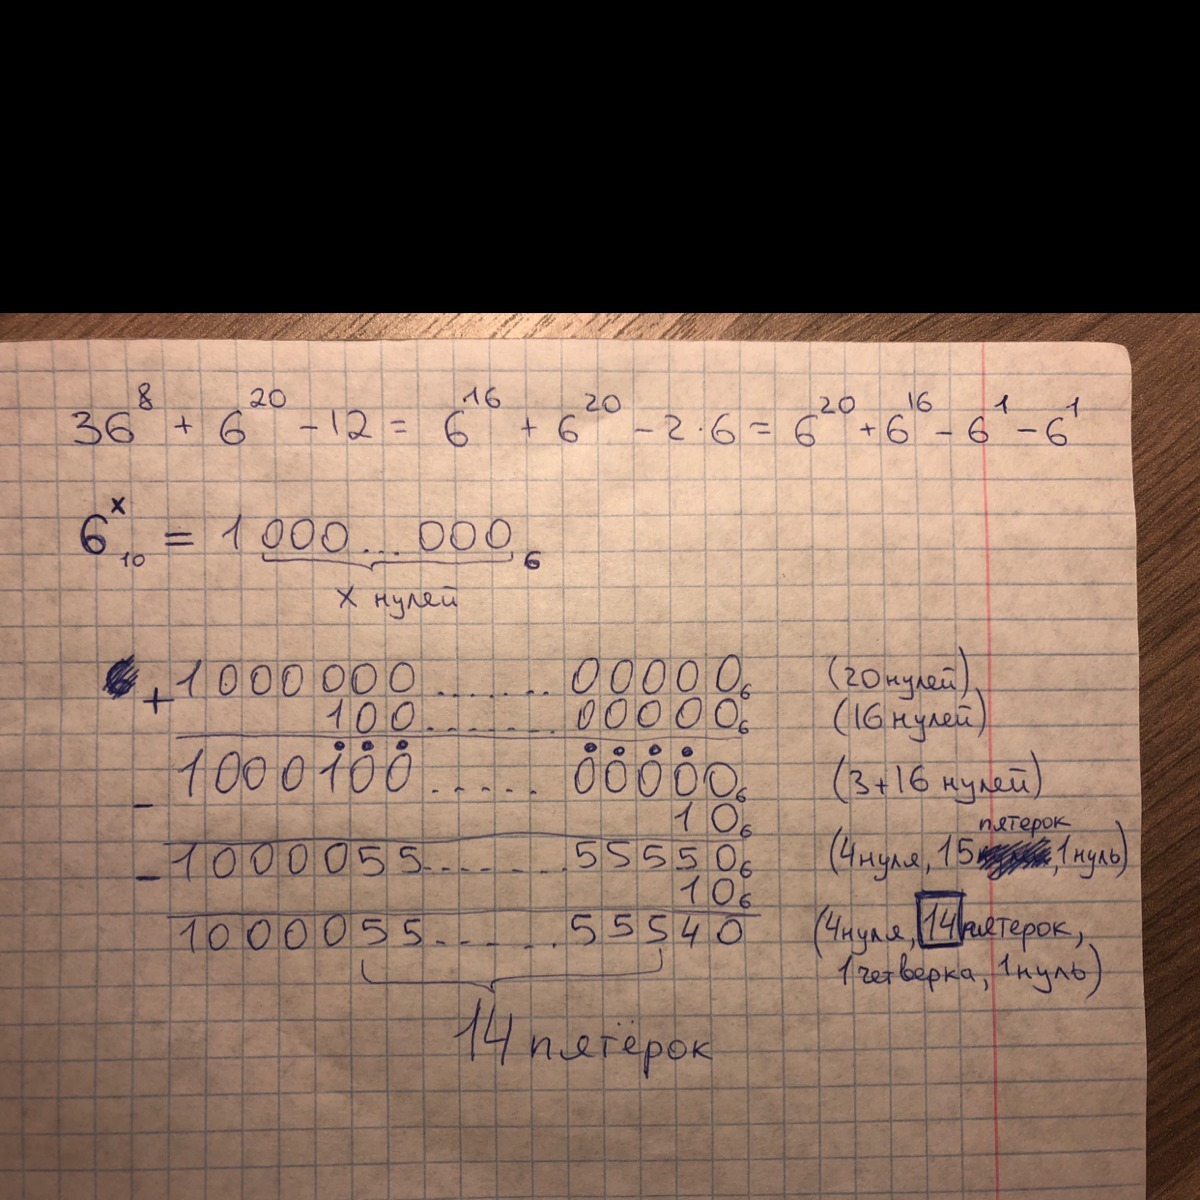 36⁸ + 6²⁰ - 12 = 6¹⁶ + 6²⁰ - 2·6 = 6²⁰ + 6¹⁶ - 6¹ - 6¹
6ˣ₁₀ = 1 000...000₆
x нулей
+ 1000000.......00000₆ (20 нулей)
100.......00000₆ (16 нулей)
1000100.....00000₆ (3+16 нулей)
- 10₆
пятерок
1000055.......55550₆ (4 нуля, 15, 1 нуль)
- 10₆
1000055.....55540 (4 нуля, 14 пятерок,
1 четверка, 1 нуль)
14 пятёрок